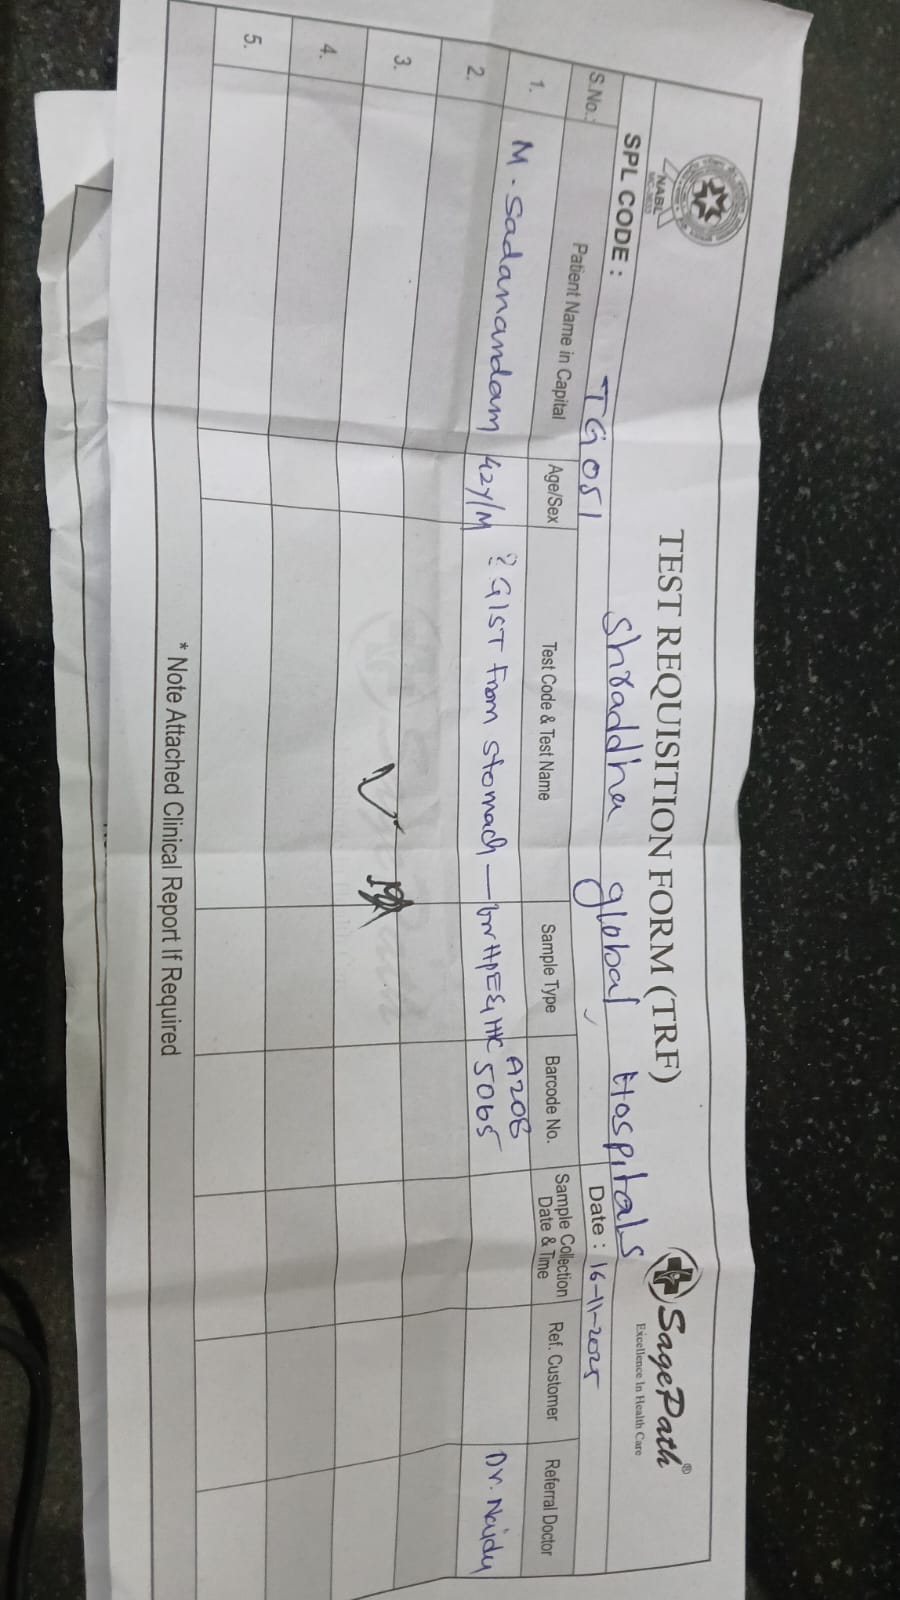 NABL
TEST REQUISITION FORM (TRF)
SagePath®
Excellence In Health Care
SPL CODE : TG051 Shraddha global Hospitals
Date : 16-11-2025
S.No. Patient Name in Capital Age/Sex Test Code & Test Name Sample Type Barcode No. Sample Collection Date & Time Ref. Customer Referral Doctor
1. M. Sadanandam 42Y/M ? GIST from stomach — for HPE & IHC A208 5065 Dr. Naidu
2.
3.
4.
5.
* Note Attached Clinical Report If Required